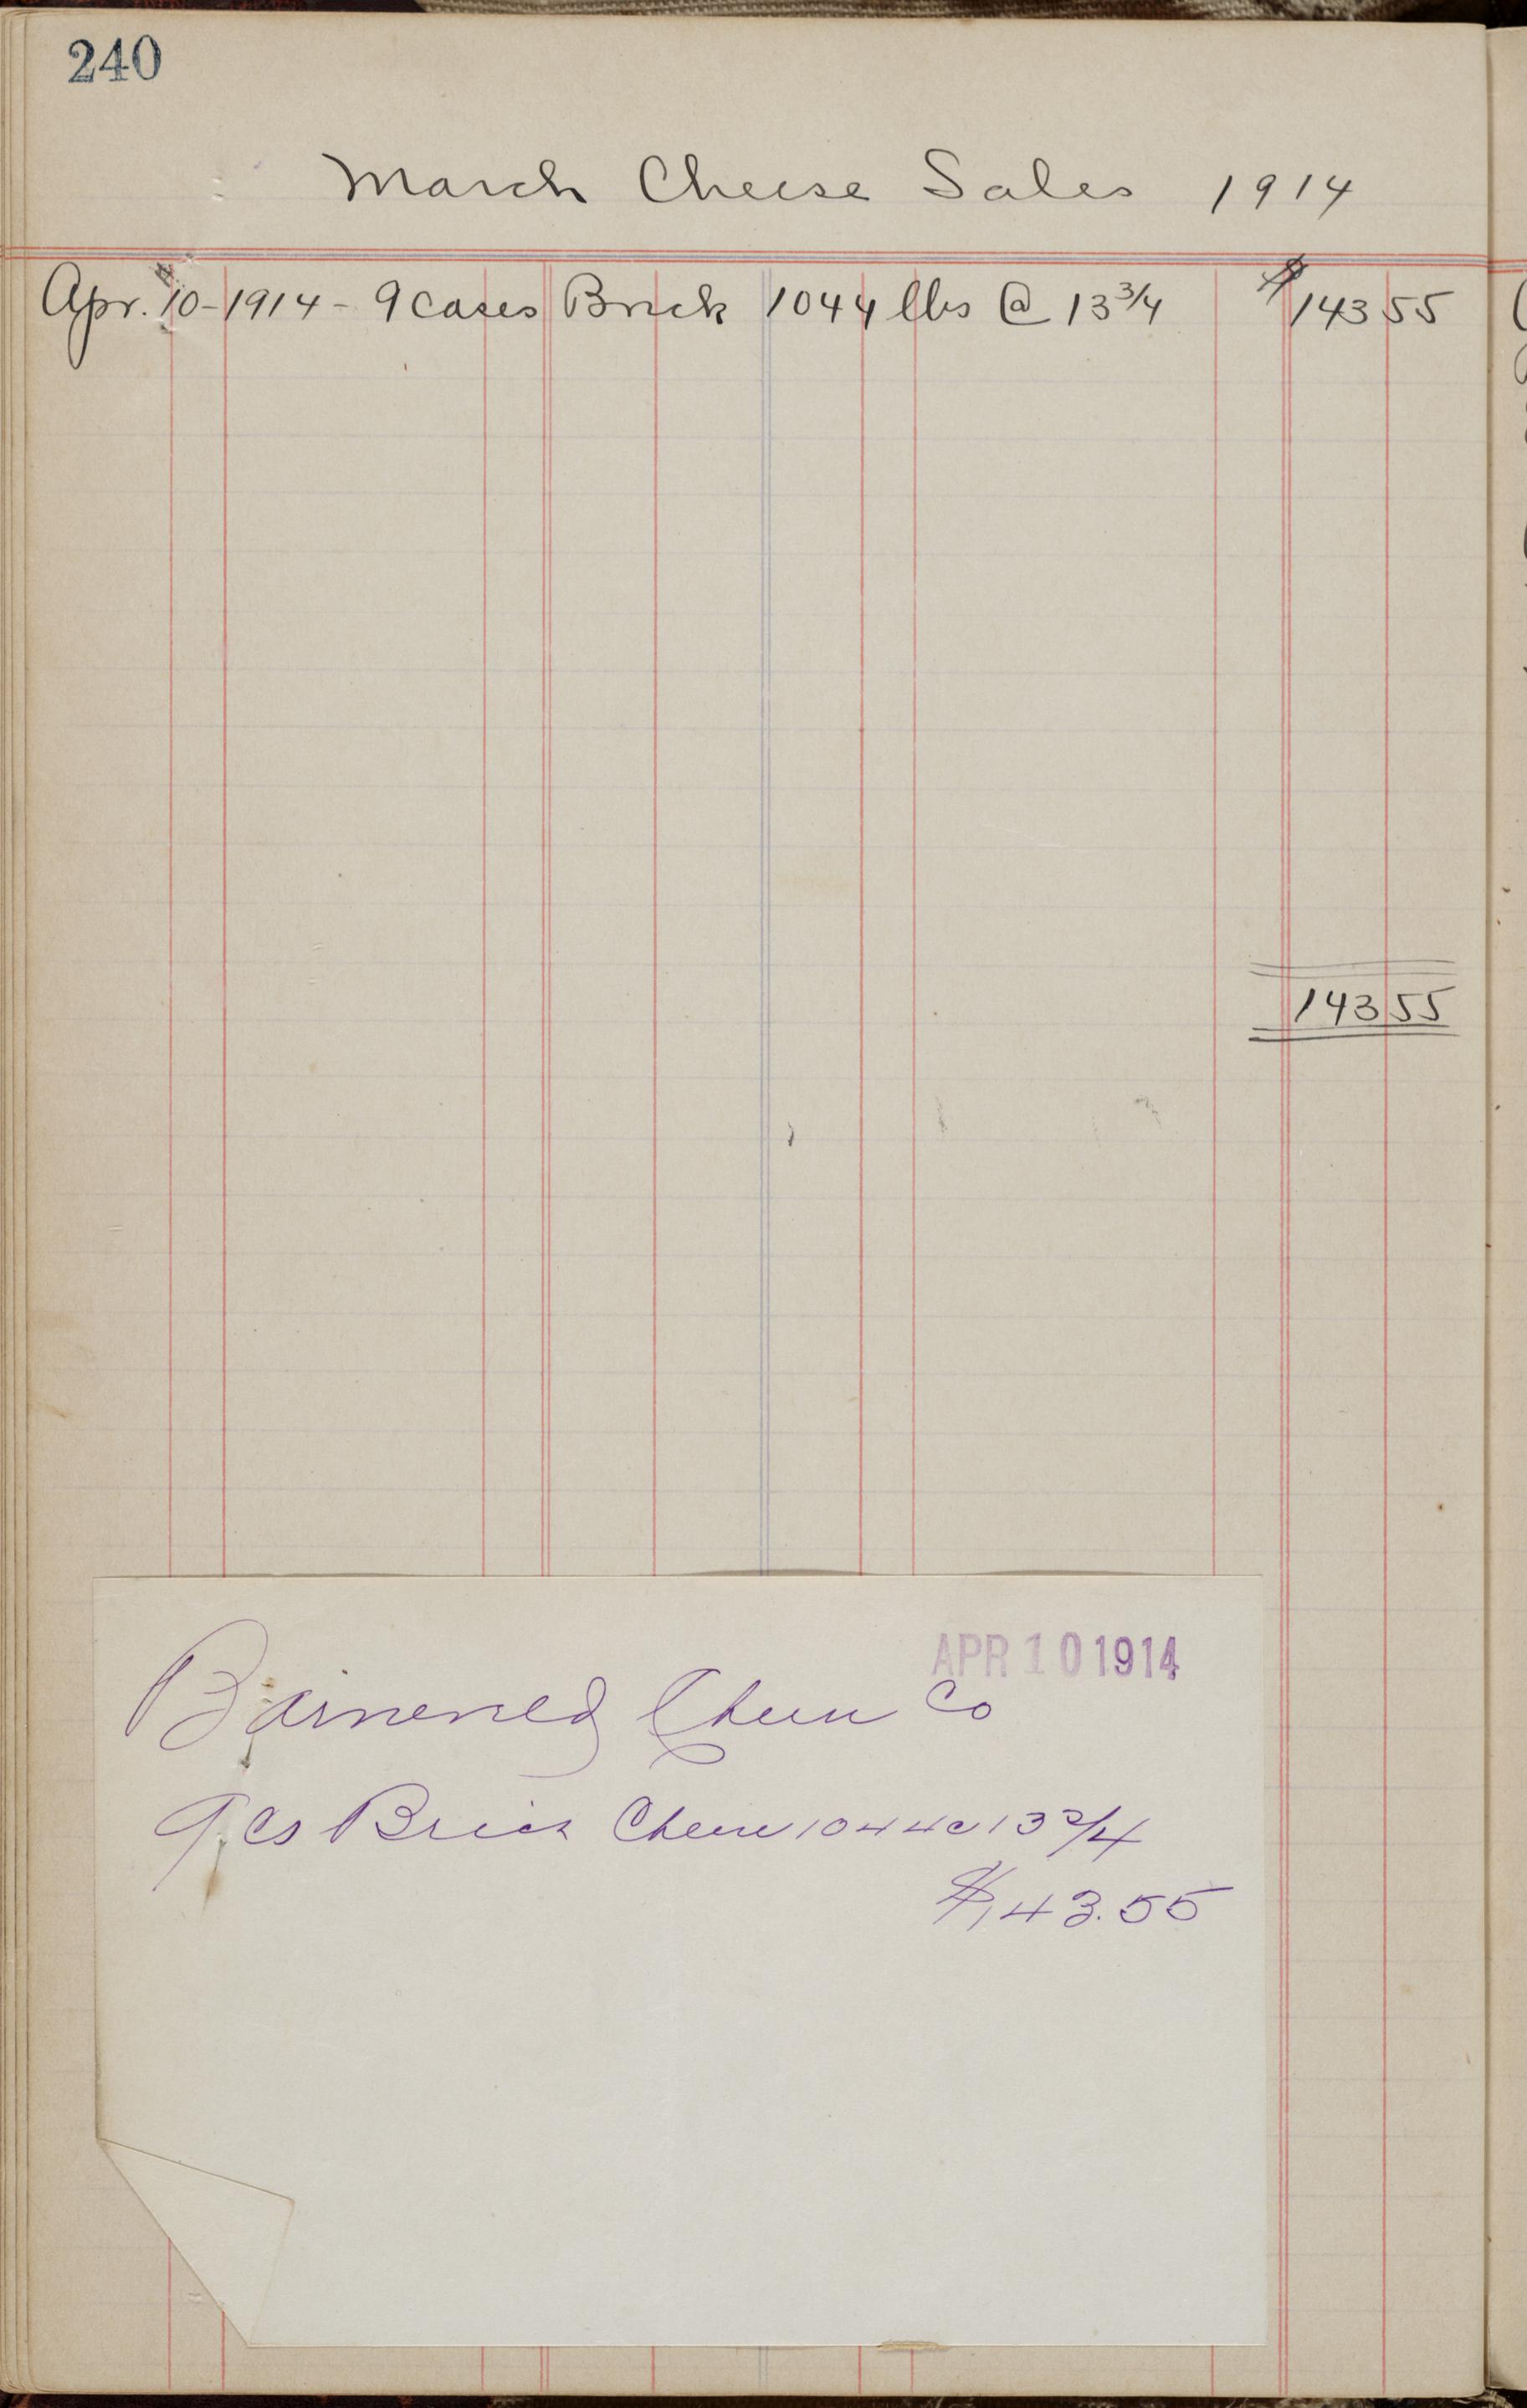 240
March Cheese Sales 1914
Apr. 10-1914- 9 cases Brick 1044 lbs @ 13 3/4 $143 55
143 55
APR 10 1914
Cheese Co
9 cs Brick Cheese 1044 @ 13 3/4
$143.55